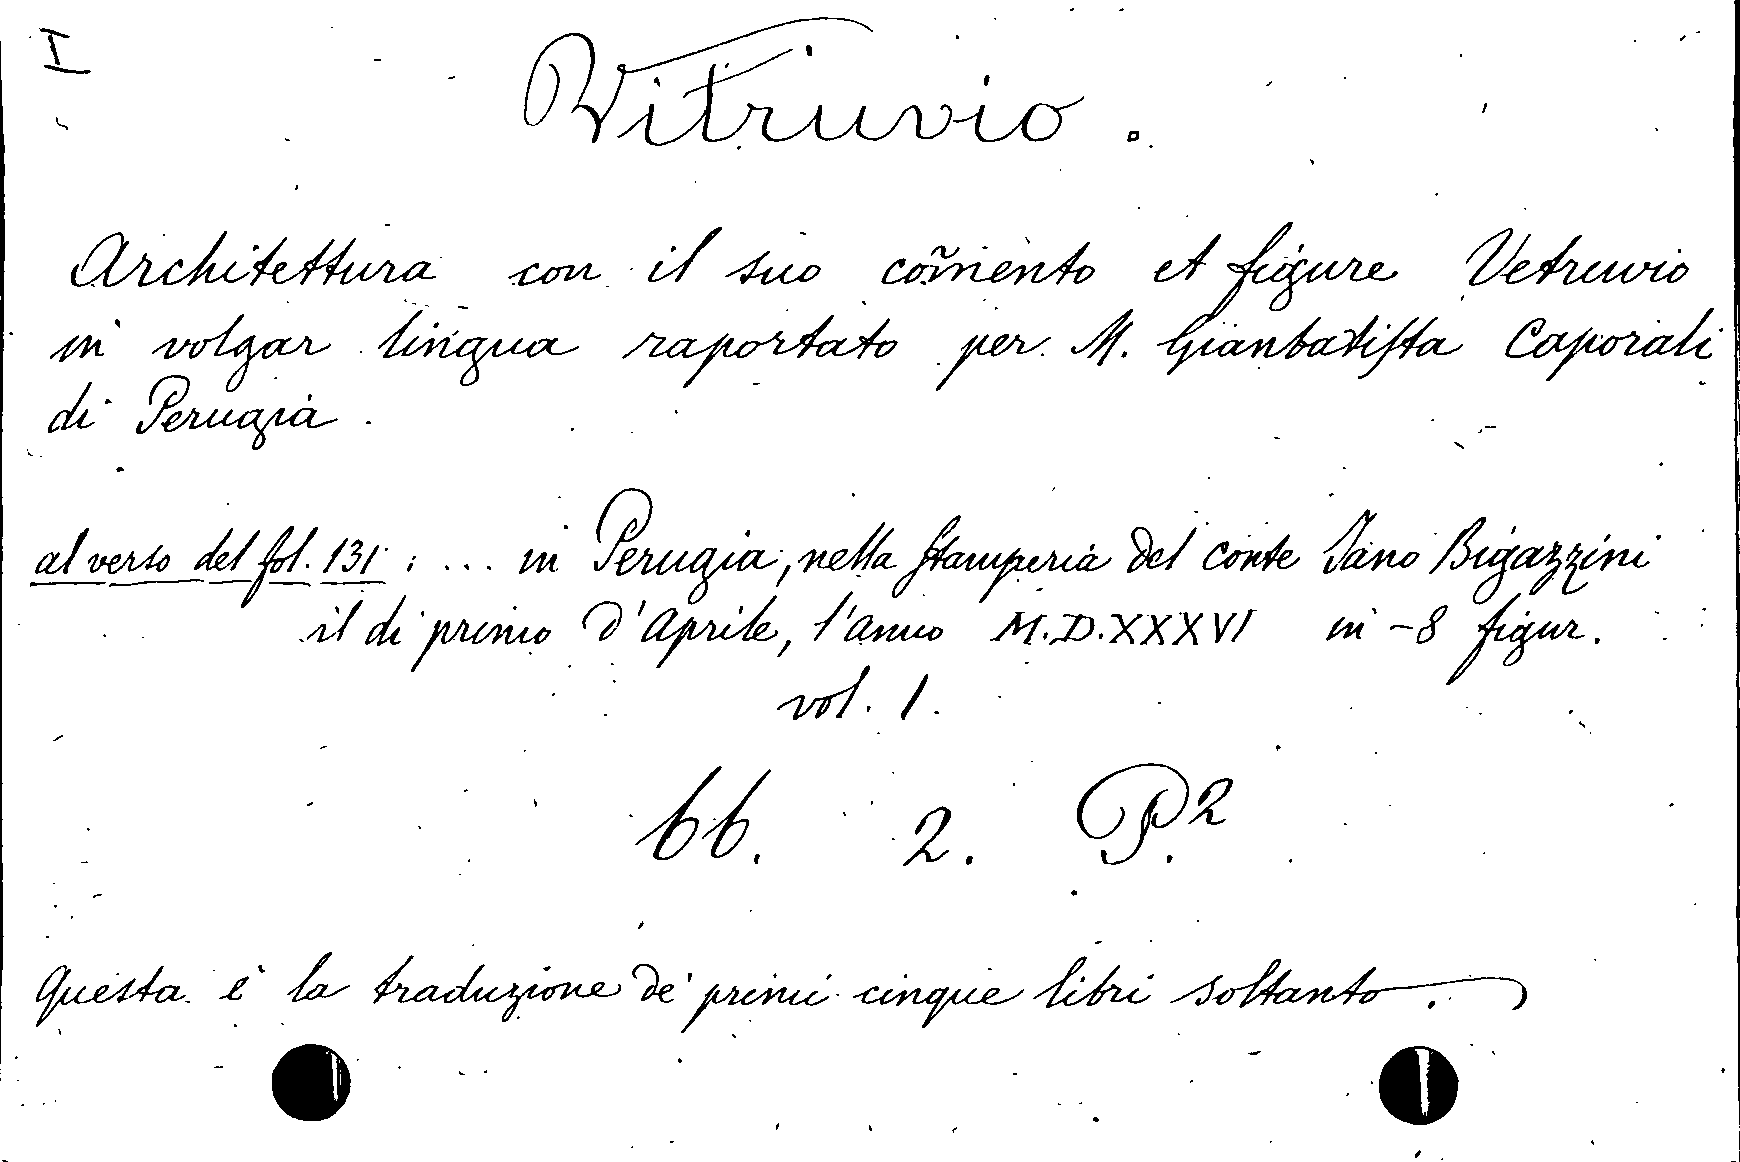 I
Vitruvio.
Architettura con il suo com̃ento et figure Vetruvio
in volgar lingua raportato per M. Gianbatiſta Caporali
di Perugia.
al verso del fol. 131: ... in Perugia, nella Stamperia del conte Iano Bigazzini
il di primo d'Aprile, l'anno M.D.XXXVI in-8 figur.
vol. 1.
bb. 2. P.2
Questa è la traduzione de' primi cinque libri soltanto.